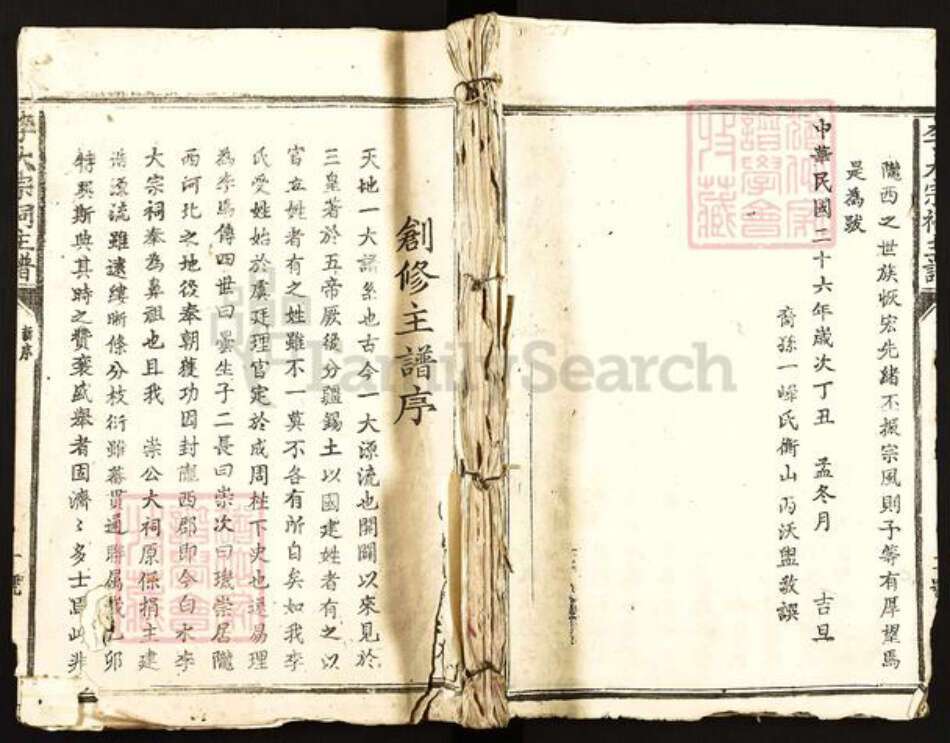 隴西之世族恢宏先緒丕振宗風則予等有厚望焉
是為跋
中華民國二十六年歲次丁丑 孟冬月 吉旦
裔孫一嶸氏衡山丙沃盥敬譔
創修主譜序
天地一大譜系也古今一大源流也開闢以來見於
三皇著於五帝厥後分疆錫土以國建姓者有之以
官立姓者有之姓雖不一莫不各有所自矣如我李
氏受姓始於虞廷理官定於成周柱下史也遂易理
為李焉傳四世曰曇生子二長曰崇次曰璣崇居隴
西河北之地後奉朝獲功因封隴西郡即今白水李
大宗祠奉為鼻祖也且我 崇公大祠原係捐主建
譜源流雖遠縷晰條分枝衍雖蕃貫通聯屬
特興斯典其時之贊襄盛舉者固濟〻多士焉此非
李大宗祠主譜
新序
李大宗祠主譜
FamilySearch